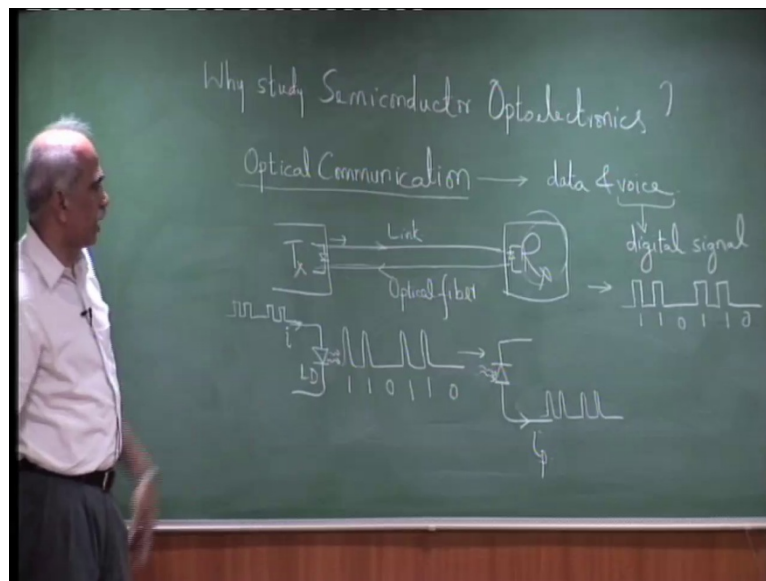 Why study Semiconductor Optoelectronics?
Optical Communication → data & voice
Tx Link Rx
digital signal
Optical fiber
1 1 0 1 1 0
i
LD
1 1 0 1 1 0
ip